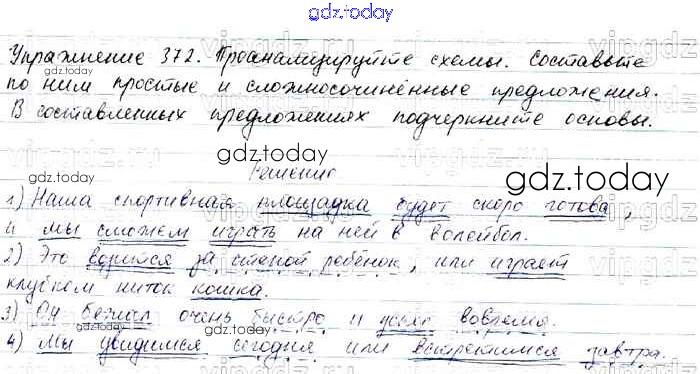 gdz.today
Упражнение 372. Проанализируйте схемы. Составьте
по ним простые и сложносочинённые предложения.
В составленных предложениях подчеркните основы.
Решение
1) Наша спортивная площадка будет скоро готова,
и мы сможем играть на ней в волейбол.
2) Это возится за стеной ребёнок, или играет
клубком ниток кошка.
3) Он бежал очень быстро и успел вовремя.
4) Мы увидимся сегодня или встретимся завтра.
gdz.today
gdz.today
gdz.today
gdz.today
gdz.today
gdz.today
gdz.today
vipgdz.ru